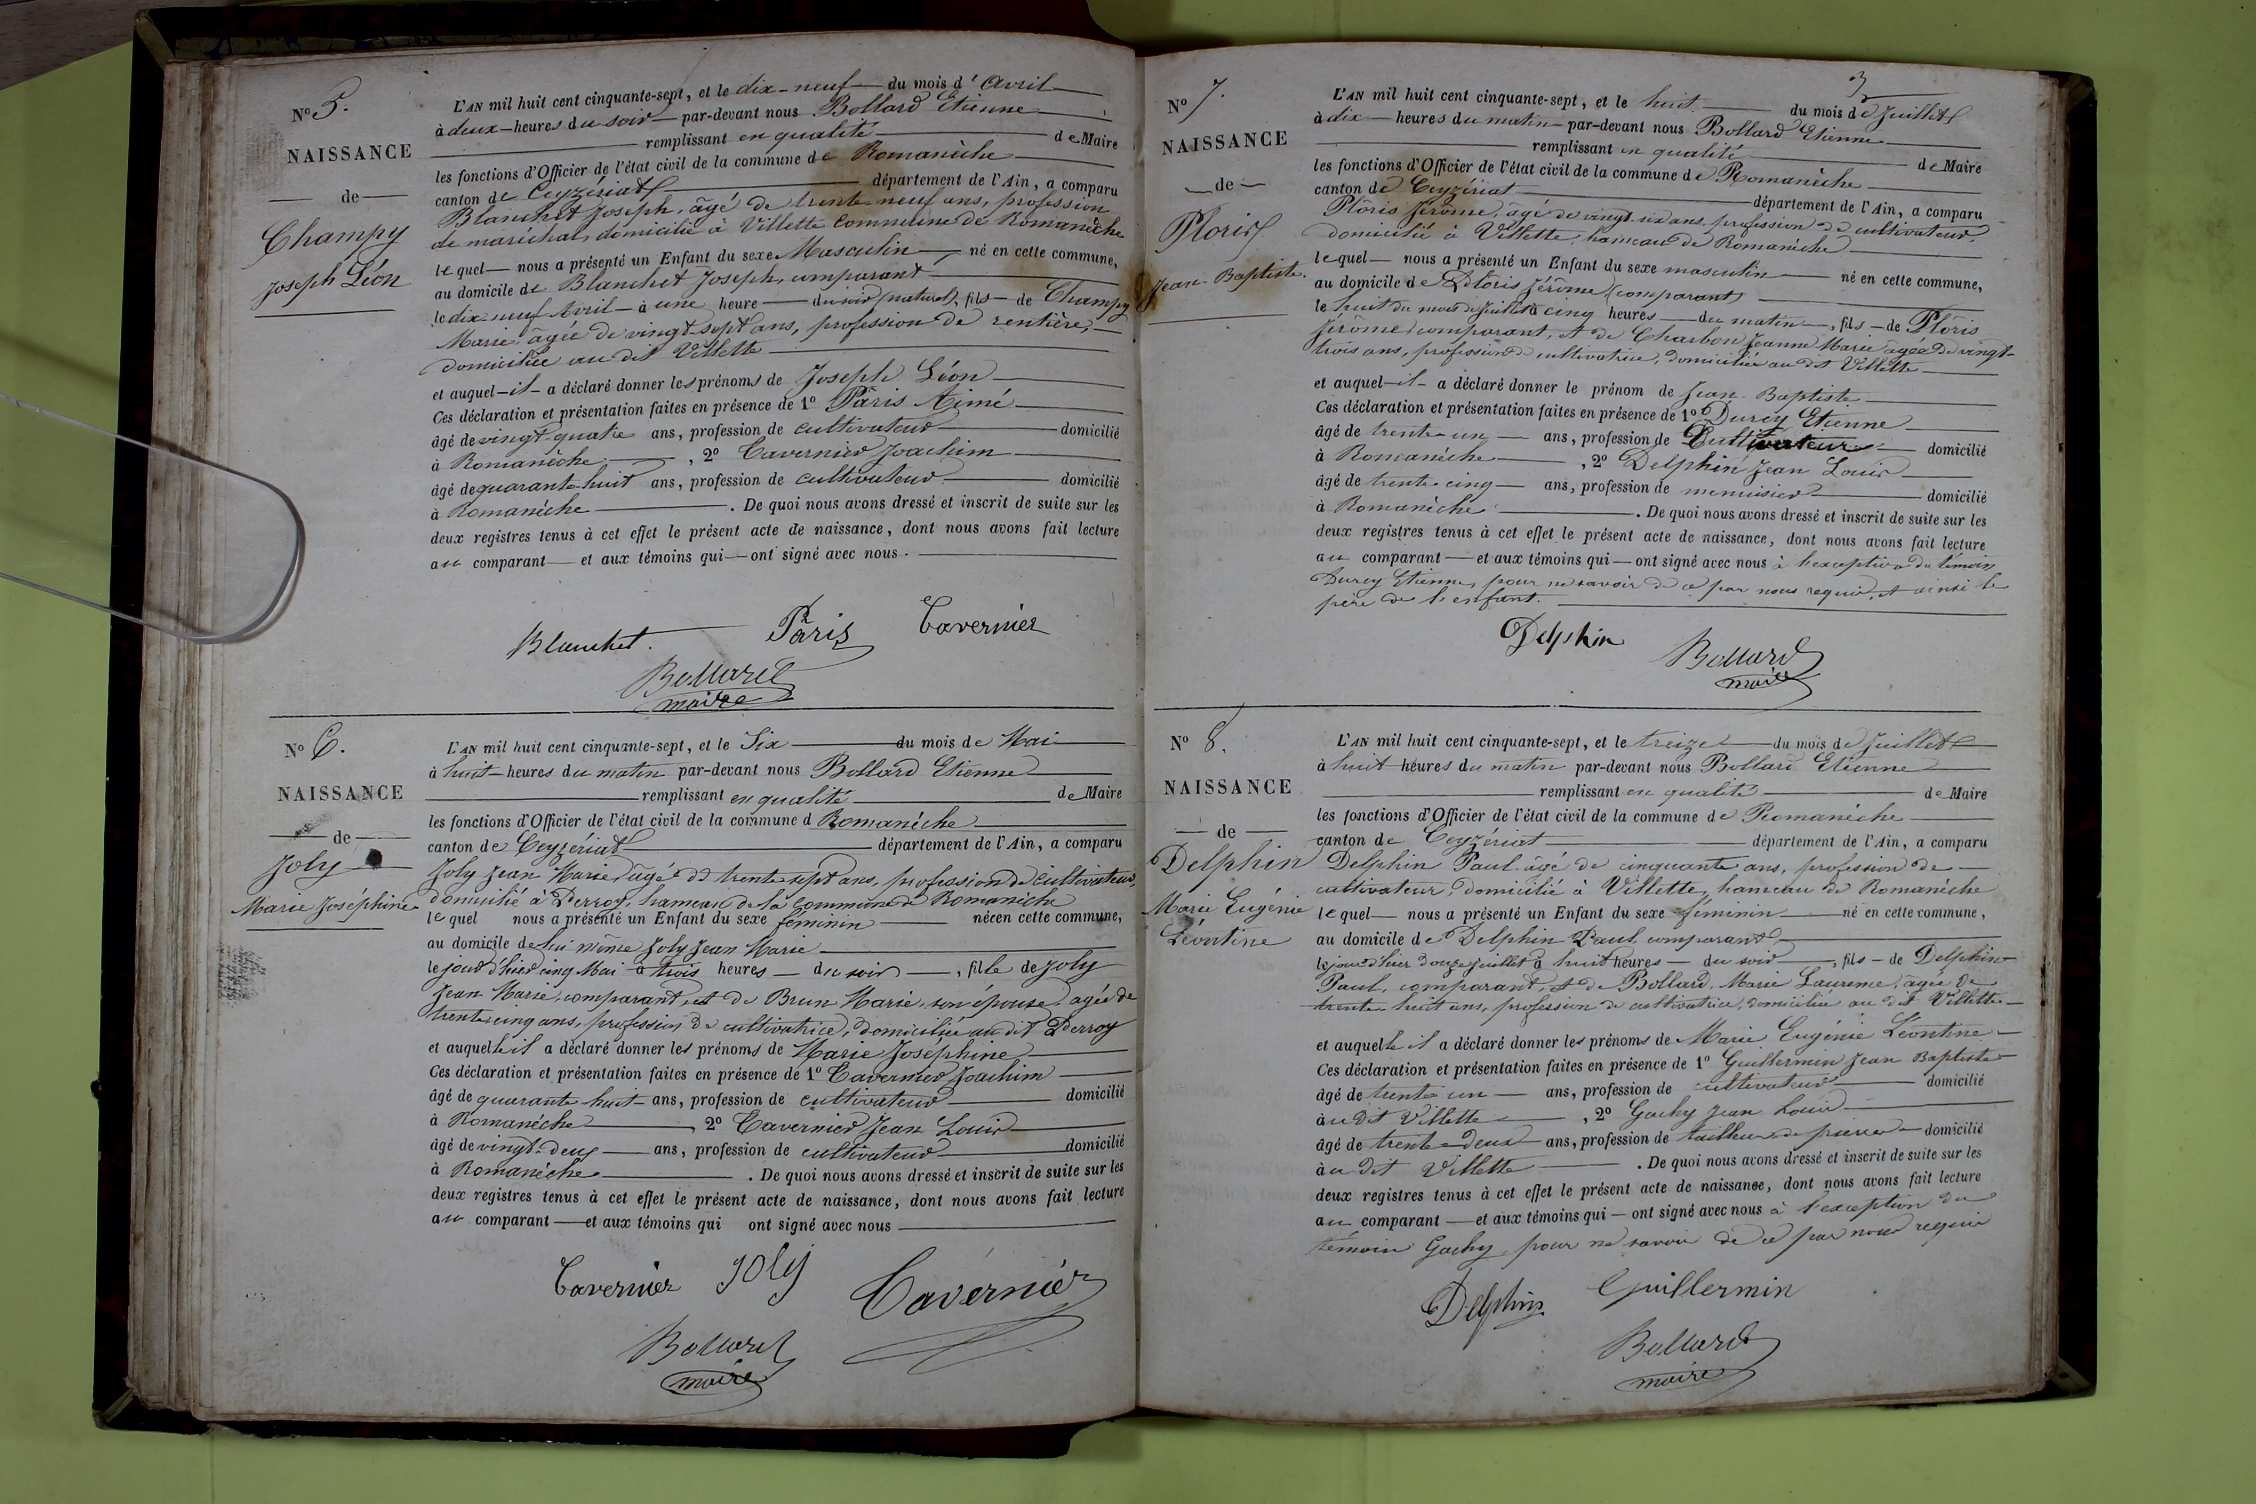 N° 5.
NAISSANCE
de
Champy
Joseph Léon
L'AN mil huit cent cinquante-sept, et le dix-neuf du mois d'Avril
à deux heures du soir par-devant nous Bollard Etienne
remplissant en qualité de Maire
les fonctions d'Officier de l'état civil de la commune de Romanèche
canton de Ceyzériat département de l'Ain, a comparu
Blanchet Joseph, âgé de trente neuf ans, profession
de maréchal, domicilié à Villette commune de Romanèche
lequel nous a présenté un Enfant du sexe Masculin né en cette commune,
au domicile de Blanchet Joseph, comparant
le dix-neuf Avril à une heure du soir (naturel), fils de Champy
Marie âgée de vingt-sept ans, profession de rentière,
domiciliée au dit Villette
et auquel il a déclaré donner les prénoms de Joseph Léon
Ces déclaration et présentation faites en présence de 1° Pâris Aimé
âgé de vingt quatre ans, profession de cultivateur domicilié
à Romanèche, 2° Tavernier Joachim
âgé de quarante huit ans, profession de cultivateur domicilié
à Romanèche. De quoi nous avons dressé et inscrit de suite sur les
deux registres tenus à cet effet le présent acte de naissance, dont nous avons fait lecture
au comparant et aux témoins qui ont signé avec nous.
Blanchet. Pâris Tavernier
Bollard
maire
N° 6.
NAISSANCE
de
Joly
Marie Joséphine
L'AN mil huit cent cinquante-sept, et le Six du mois de Mai
à huit heures du matin par-devant nous Bollard Etienne
remplissant en qualité de Maire
les fonctions d'Officier de l'état civil de la commune d Romanèche
canton de Ceyzériat département de l'Ain, a comparu
Joly Jean Marie âgé de trente sept ans, profession de cultivateur,
domicilié à Derroy, hameau de la commune de Romanèche
lequel nous a présenté un Enfant du sexe féminin née en cette commune,
au domicile de lui même Joly Jean Marie
le jour d'hier cinq Mai à trois heures du soir, fille de Joly
Jean Marie, comparant, et de Brun Marie, son épouse, agée de
trente cinq ans, profession de cultivatrice, domiciliée au dit Derroy
et auquelle il a déclaré donner les prénoms de Marie Joséphine
Ces déclaration et présentation faites en présence de 1° Tavernier Joachim
âgé de quarante huit ans, profession de cultivateur domicilié
à Romanèche, 2° Tavernier Jean Louis
âgé de vingt-deux ans, profession de cultivateur domicilié
à Romanèche. De quoi nous avons dressé et inscrit de suite sur les
deux registres tenus à cet effet le présent acte de naissance, dont nous avons fait lecture
au comparant et aux témoins qui ont signé avec nous
Tavernier Joly Tavernier
Bollard
maire
3
N° 7.
NAISSANCE
de
Ploris
Jean-Baptiste.
L'AN mil huit cent cinquante-sept, et le huit du mois de Juillet
à dix heures du matin par-devant nous Bollard Etienne
remplissant en qualité de Maire
les fonctions d'Officier de l'état civil de la commune de Romanèche
canton de Ceyzériat département de l'Ain, a comparu
Plôris Jérôme, âgé de vingt-six ans, profession de cultivateur,
domicilié à Villette, hameau de Romanèche
lequel nous a présenté un Enfant du sexe masculin né en cette commune,
au domicile de Plôris Jérôme (comparant)
le huit du mois de Juillet à cinq heures du matin, fils de Plôris
Jérôme comparant, et de Charbon Jeanne Marie âgée de vingt-
trois ans, profession de cultivatrice, domiciliée au dit Villette
et auquel il a déclaré donner le prénom de Jean-Baptiste
Ces déclaration et présentation faites en présence de 1° Durey Etienne
âgé de trente-un ans, profession de Cultivateur domicilié
à Romanèche, 2° Delphin Jean Louis
âgé de trente-cinq ans, profession de menuisier domicilié
à Romanèche. De quoi nous avons dressé et inscrit de suite sur les
deux registres tenus à cet effet le présent acte de naissance, dont nous avons fait lecture
au comparant et aux témoins qui ont signé avec nous à l'exception du témoin
Durey Etienne, pour ne savoir de ce par nous requis, et ainsi le
père de l'enfant.
Delphin Bollard
maire
N° 8.
NAISSANCE
de
Delphin
Marie Eugénie
Léontine
L'AN mil huit cent cinquante-sept, et le treize du mois de Juillet
à huit heures du matin par-devant nous Bollard Etienne
remplissant en qualité de Maire
les fonctions d'Officier de l'état civil de la commune de Romanèche
canton de Ceyzériat département de l'Ain, a comparu
Delphin Paul âgé de cinquante ans, profession de
cultivateur, domicilié à Villette, hameau de Romanèche
lequel nous a présenté un Enfant du sexe féminin né en cette commune,
au domicile de Delphin Paul comparant
le jour d'hier douze juillet à huit heures du soir, fils de Delphin
Paul, comparant, et de Bollard, Marie Laureme, âgée de
trente-huit ans, profession de cultivatrice, domiciliée au dit Villette
et auquelle il a déclaré donner les prénoms de Marie Eugénie Léontine
Ces déclaration et présentation faites en présence de 1° Guillermin Jean Baptiste
âgé de trente un ans, profession de cultivateur domicilié
à u dit Villette, 2° Gachy Jean Louis
âgé de trente-deux ans, profession de tailleur de pierre domicilié
à u dit Villette. De quoi nous avons dressé et inscrit de suite sur les
deux registres tenus à cet effet le présent acte de naissance, dont nous avons fait lecture
au comparant et aux témoins qui ont signé avec nous à l'exception du
témoin Gachy, pour ne savoir de ce par nous requis
Delphin Guillermin
Bollard
maire